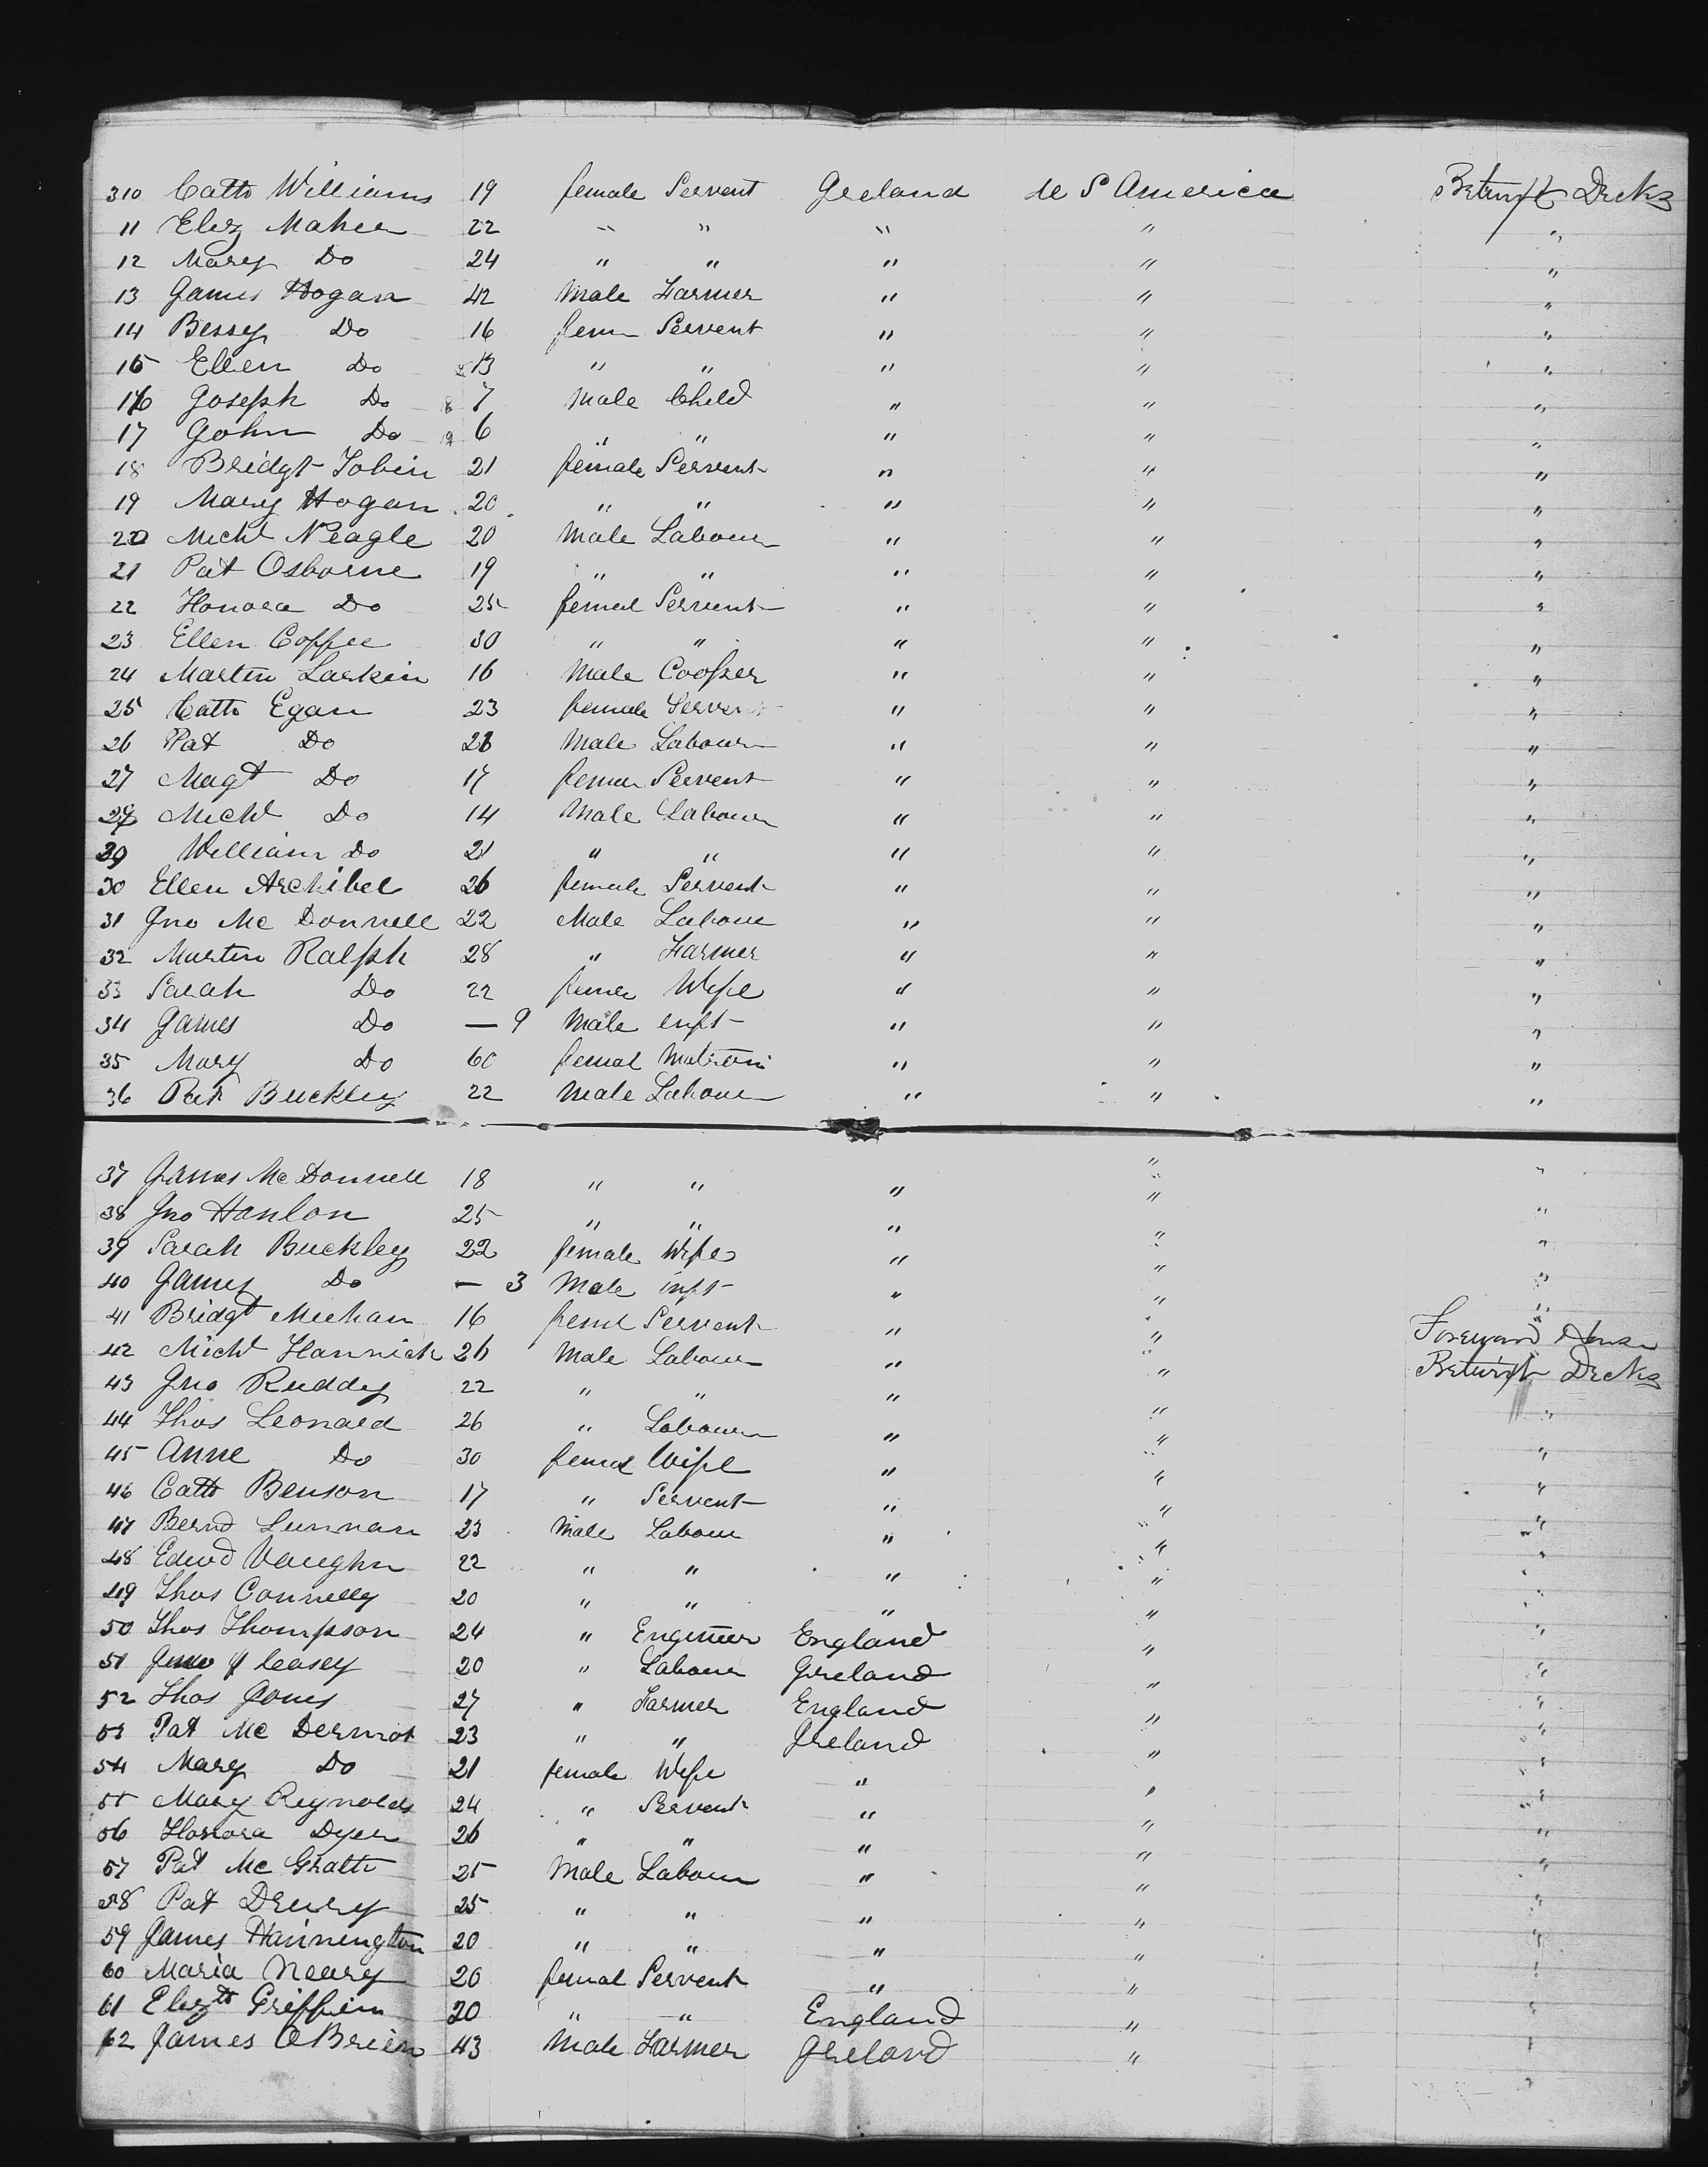 310 Cath Williams 19 female Servent Ireland U S America Betwixt Decks
11 Eliz Maher 22 " " " " "
12 Mary Do 24 " " " " "
13 James Hogan 42 Male Farmer " " "
14 Bessy Do 16 fem Servent " " "
15 Ellen Do 13 " " " " "
16 Joseph Do 7 Male Child " " "
17 John Do 6 " " " " "
18 Bridgt Tobin 21 female Servent " " "
19 Mary Hogan 20 " " " " "
20 Michl Neagle 20 Male Labour " " "
21 Pat Osborne 19 " " " " "
22 Honora Do 25 femal Servent " " "
23 Ellen Coffee 30 " " " " "
24 Martin Larkin 16 Male Cooper " " "
25 Cath Egan 23 female Servent " " "
26 Pat Do Male Labour " " "
27 Magt Do 17 female Servent " " "
28 Michl Do 14 Male Labour " " "
29 William Do 21 " " " " "
30 Ellen Archibel 26 female Servent " " "
31 Jno Mc Donnell 22 Male Labour " " "
32 Martin Ralph 28 " Farmer " " "
33 Sarah Do 22 femal Wife " " "
34 James Do — 9 Male inft " " "
35 Mary Do 60 femal Matron " " "
36 Pat Buckley 22 Male Labour " " "
37 James Mc Donnell 18 " " " " "
38 Jno Hanlon 25 " " " " "
39 Sarah Buckley 22 female Wife " " "
40 James Do — 3 Male inft " " "
41 Bridgt Meehan 16 feml Servent " " "
42 Michl Hannick 26 Male Labour " " Foreward House
43 Jno Ruddy 22 " " " " Betwixt Decks
44 Thos Leonard 26 " Labour " " "
45 Anne Do 30 femal Wife " " "
46 Cath Benson 17 " Servent " " "
47 Bernd Lunnan 23 Male Labour " " "
48 Edwd Vaughn 22 " " " " "
49 Thos Connelly 20 " " " " "
50 Thos Thompson 24 " Engineer England " "
51 Casey 20 " Labour Ireland " "
52 Thos Jones 27 " Farmer England " "
53 Pat Mc Dermot 23 " " Ireland " "
54 Mary Do 21 female Wife " " "
55 Mary Reynolds 24 " Servent " " "
56 Honora Dyer 26 " " " " "
57 Pat Mc Grath 25 Male Labour " " "
58 Pat Drury 25 " " " " "
59 James Hannington 20 " " " " "
60 Maria Neary 20 femal Servent " " "
61 Elizth Griffin 20 " " England " "
62 James O Brien 43 Male Farmer Ireland " "